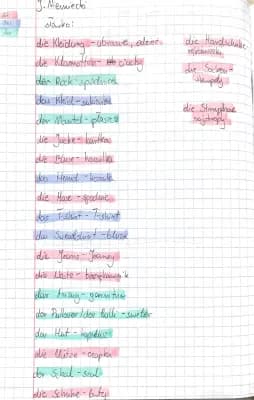 J. Niemiecki
słówka:
die Kleidung - ubranie, odzież
die Klamotten - ciuchy
der Rock - spódnica
das Kleid - sukienka
der Mantel - płaszcz
die Jacke - kurtka
die Bluse - koszulka
das Hemd - koszula
die Hose - spodnie
das T-shirt - T-shirt
das Sweatshirt - bluza
die Jeans - Jeansy
die Weste -
der Anzug - garnitur
der Pullover/der Pulli - sweter
der Hut - kapelusz
die Mütze - czapka
der Schal - szal
die Schuhe - buty
die Handschuhe - rękawiczki
die Socken - skarpety
die Strumpfhose - rajstopy